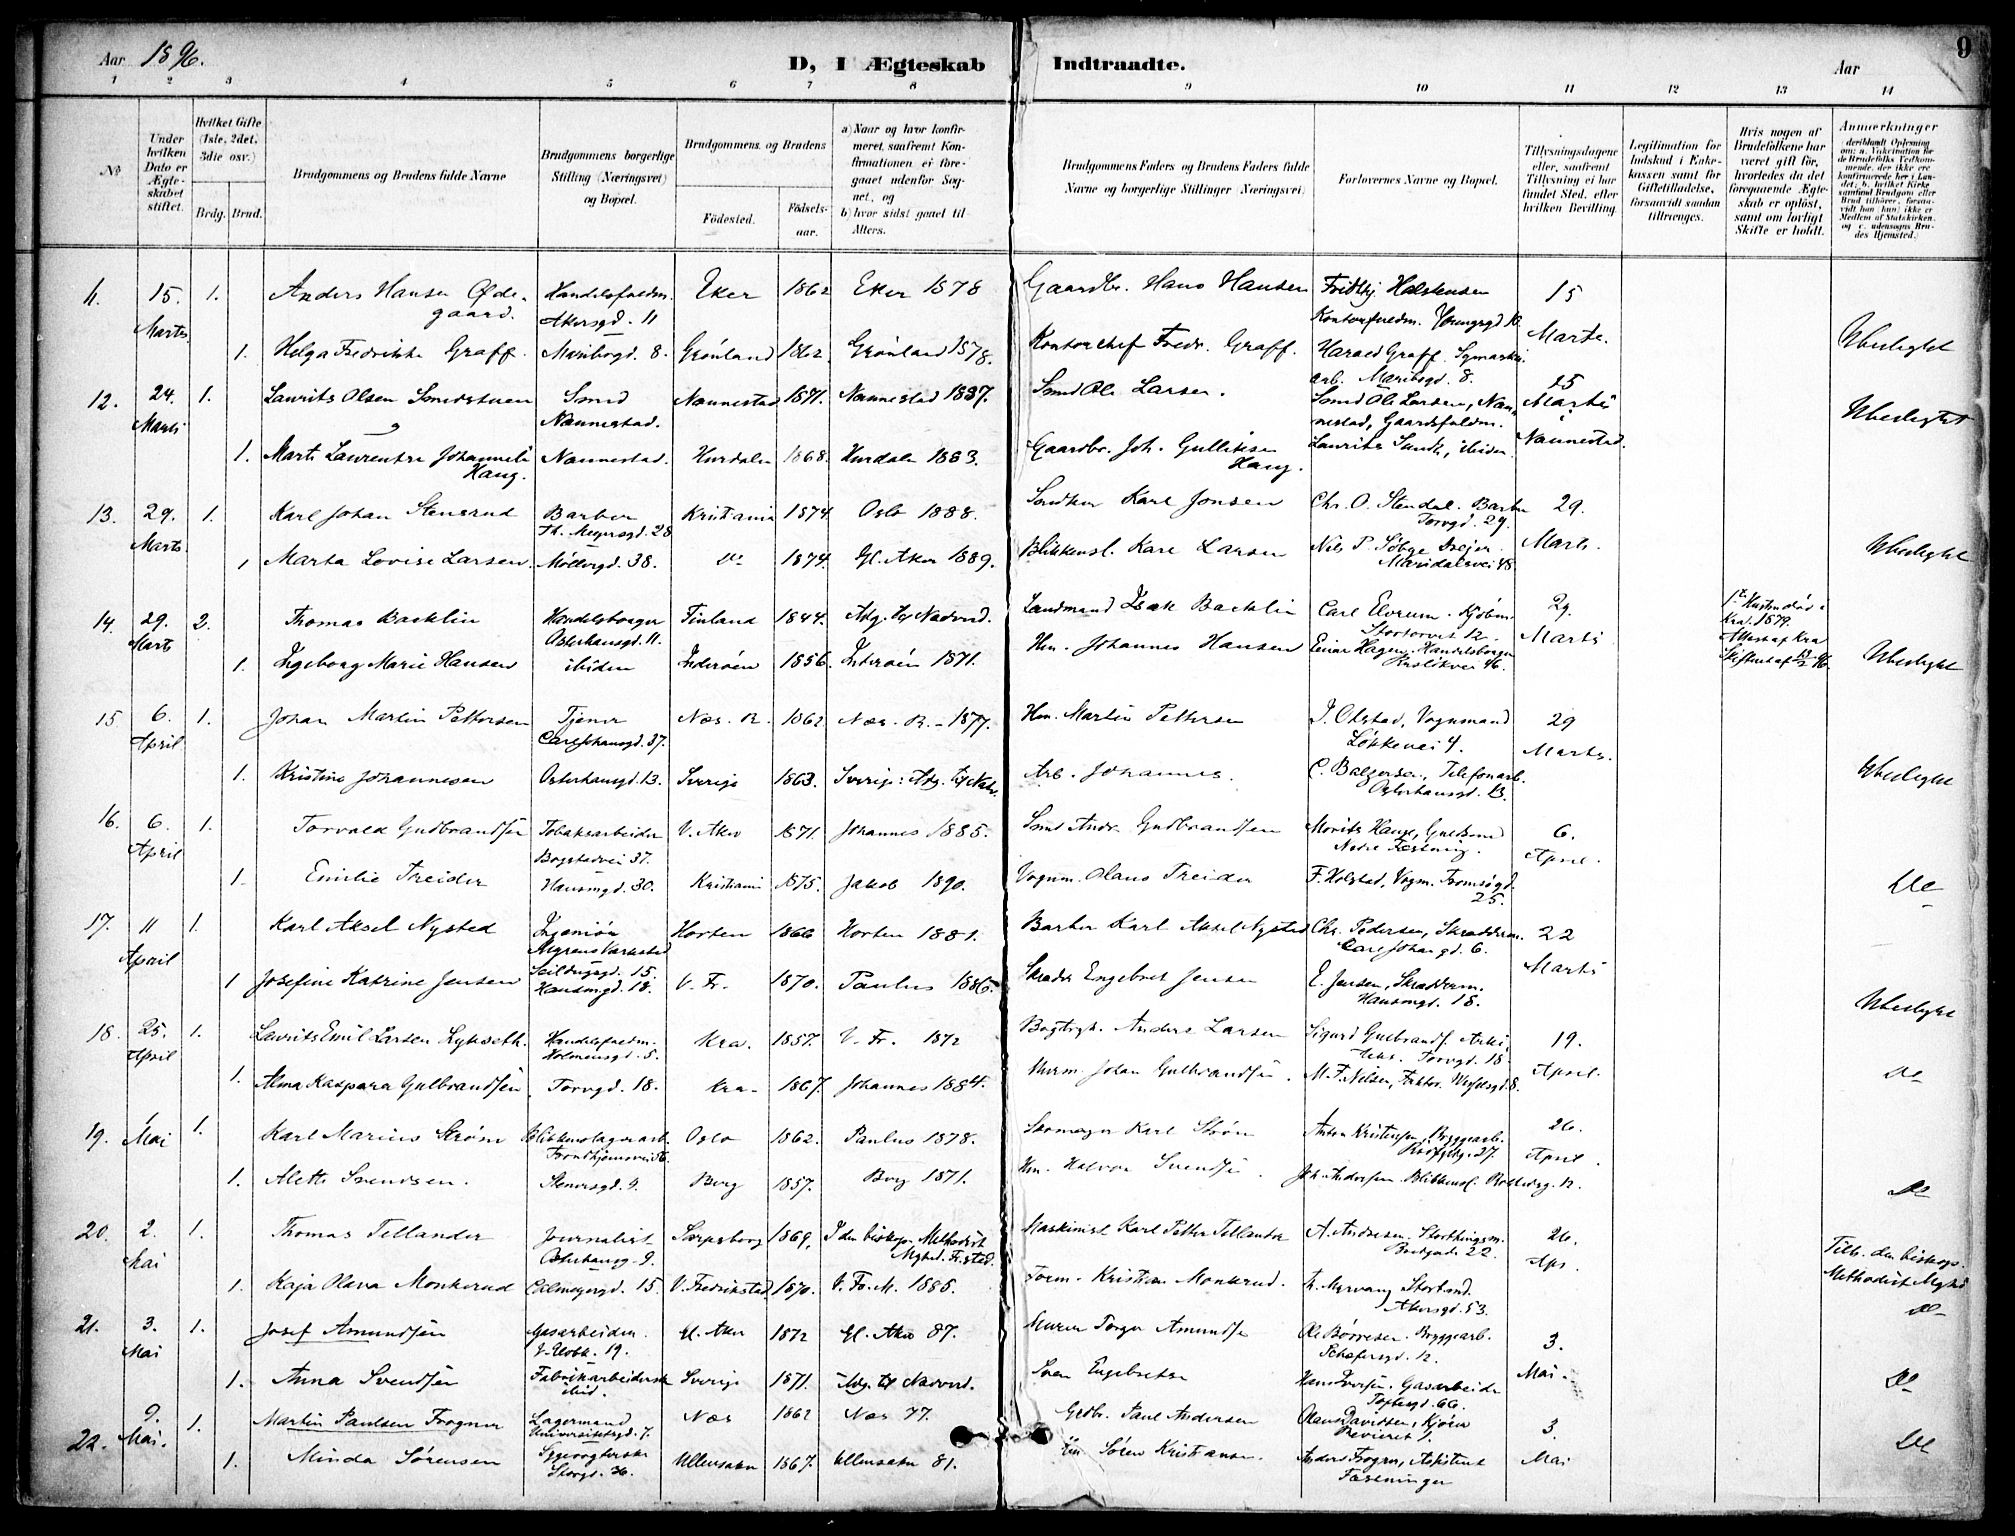 Aar 1896. D, I Ægteskab Indtraadte. Aar 9
1 2 3 4 5 6 7 8 9 10 11 12 13 14
No
Under hvilken Dato er Ægteskabet stiftet.
Hvilket Gifte (1ste, 2det, 3die osv.)
Brdg. Brud.
Brudgommens og Brudens fulde Navne
Brudgommens borgerlige Stilling (Næringsvei) og Bopæl.
Brudgommens og Brudens
Födested. Födselsaar.
a) Naar og hvor konfirmeret, saafremt Konfirmationen er foregaaet udenfor Sognet, og
b) hvor sidst gaaet til Alters.
Brudgommens Faders og Brudens Faders fulde Navne og borgerlige Stillinger (Næringsvei)
Forlovernes Navne og Bopæl.
Tillysningsdagene eller, saafremt Tillysning ei har fundet Sted, efter hvilken Bevilling.
Legitimation for Indskud i Enkekassen samt for Giftetilladelse, forsaavidt saadan tiltrænges.
Hvis nogen af Brudefolkene har været gift för, hvorledes da det foregaaende Ægteskab er oplöst, samt om lovligt Skifte er holdt.
Anmærkninger
11. 15. Marts 1. Anders Hansen Ødegaard. Handelsfuldm. Akersgd. 11 Eker 1862 Eker 1878 Gaardbr. Hans Hansen Kontorfuldm. Youngsgd 10. 15 Marts.
1. Helga Fredrikke Graff. Maribogd. 8. Grønland 1862. Grønland 1878. Kontorchef Fredr. Graff. Harald Graff. arb. Maribogd. 8. Ubeslegtet
12. 24. Marts 1. Laurits Olsen Smedstuen Smed Nannestad. Nannestad 1871. Nannestad 1887. Smed Ole Larsen. Smed Ole Larsen, Nannestad, Gaardsfuldm. 25 Marts i Nannestad. Ubeslegtet
1. Johannesd. Haug. Nannestad. Hurdalen 1868. Hurdalen 1883. Gaardbr. Joh. Gulliksen Haug. Laurits Sundt, ibiden.
13. 29. Marts 1. Karl Johan Stensrud Barber Th. Meyersgd. 28 Kristiania 1874 Oslo 1888. Karl Jonsen Chr. O. Stendal. Barber Torvgd. 29. 29. Marts.
1 Marta Lovise Larsen. Møllergd. 38. Do 1874. Gl. Aker 1889. Blikkensl. Karl Larsen Nils P. Maridalsvei 48. Ubeslegtet
14. 29. Marts 2. Thomas Backlin Handelsborger Osterhausgd. 11. Finland 1844. Adg. til Nadverd. Landmand Isak Backlin Carl Elvrum. Stortorvet 12. 29. Marts 1ste Hustru død i Kra. 1879. Attest af Kra Skifteret af 13/2 96.
1. Ingeborg Marie Hansen ibiden Inderøen 1856. Inderøen 1871. Hm. Johannes Hansen Einar Hagen. Handelsborger 46. Ubeslegtet
15 6. April 1. Johan Martin Pettersen Tjener Carl Johansgd. 37. Næs. R. 1862 Næs. R. – 1877. Hm. Martin Pettersen J. Olstad, Vognmand Løkkevei 4. 29 Marts.
1. Kristine Johannesen Osterhausgd. 13. Sverige 1863. Sverige: Adg. til Nadv. Arb. Johannes. C. Balzersen, Telefonarb. Osterhausgd. 13. Ubeslegtet
16. 6. April 1. Torvald Gudbrandsen Tobaksarbeider Bogstadvei 37. V. Aker 1871. Johannes 1885. Smed Andr. Gudbrandsen Morits Hauge, Guldsmed Nedre Fæstning. 6. April.
1. Emilie Treider Hausmgd. 30. Kristiania 1875. Jakob 1890. Vognm. Olaus Treider F. Holstad, Vogm. Tromsøgd. 25. Do
17. 11 April 1. Karl Aksel Nysted Ingeniør Myrens Værksted Horten 1866 Horten 1881. Barber Karl Aksel Nysted Chr. Pedersen, Skrædderm. Carl Johan gd. 6. 22 Marts
1 Josefine Katrine Jensen Seildugsgd. 15. Hausmgd. 18. V. Fr. 1870. Paulus 1886. Skræder Engebret Jensen E. Jensen, Skrædderm. Hausmgd. 18. Ubeslegtet
18. 25. April 1. Laurits Emil Larsen Handelsfuldm. Holmensgd. 5. Kra. 1857. V. Fr. 1872 Bogtryk. Anders Larsen Sigurd Gulbrands. Torvgd. 18 19. April.
1. Alma Kaspara Gulbrandsen. Torvgd. 18. Kra. 1867. Johannes 1884. Murm. Johan Gulbrandsen. M. F. Nilsen, Faktor. 8. Do
19. 1. Mai 1. Karl Marius Strøm Trondhjemsvei 56. Oslo 1862. Paulus 1878. Skomager Karl Strøm Anton Kristensen, Bryggearb. 27. 26. April.
1. Alette Svendsen. Stenersgd. 9. Berg 1857. Berg 1871. Hm. Halvor Svendsen. Joh. Andersen Blikkensl. 12. Do
20. 2. Mai 1. Thomas Tellander Journalist Osterhausg. 9. Sarpsborg 1869. I den biskop. Methodist Mghd. Fr.stad. Maskinist Karl Petter Tellander A. Andresen. Storthingsm. 22. 26. Apr. Tilh. den biskop. Methodist Mghd
1. Kaja Olava Monkerud Calmeyergd. 15. V. Fredrikstad 1870. V. Fr. M. 1885. Form. Kristian Monkrud. H. Myrvang Akersgd. 53. Do
21. 3. Mai 1. Josef Amundsen Gasarbeider. 19. Gl. Aker 1872 Gl. Aker 87. Murer Torger Amundsen Ole Børresen. Bryggearb. Schæfersgd. 12. 3. Mai.
1. Anna Svendsen Fabrikarbeiderske ibid. Sverige 1871. Adg. til Nadverd. Sven Engebretsen Hans Iversen. Gasarbeider Toftesgd. 66. Do
22. 9. Mai. 1. Martin Paulsen Frogner Lagermand Universitetsgd. 7. Næs 1862 Næs 77. Grdbr. Paul Andersen Olaus Davidsen, Revieret 1. 3. Mai
1. Minda Sørensen Storgd. 36. Ullensaker 1867. Ullensaker 81. Søren Kristiansen. Anders Frogner, Assistent Fæstningen Do